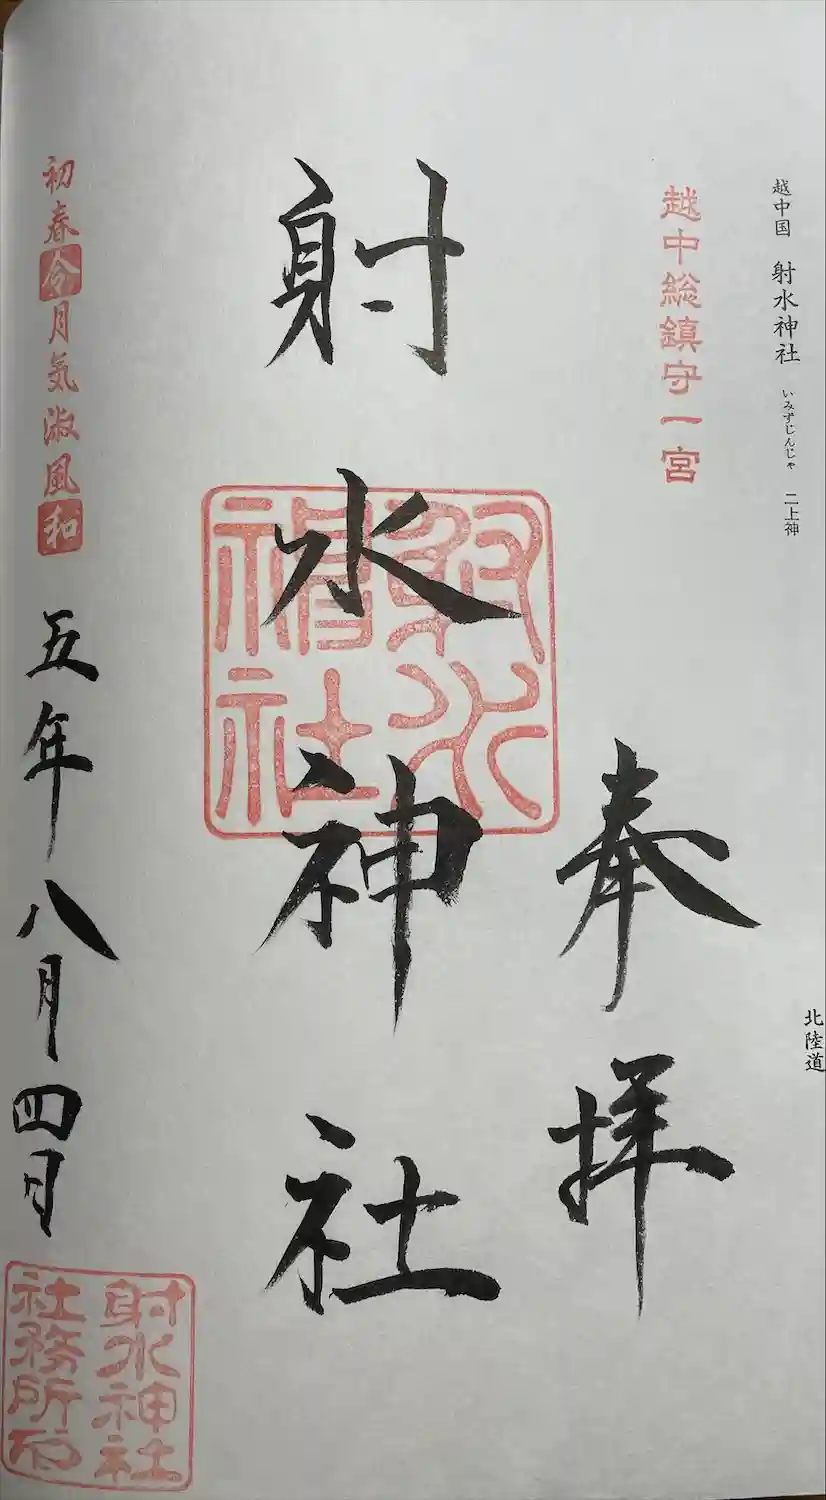 越中国 射水神社 いみずじんじゃ 二上神
北陸道
越中総鎮守一宮
奉拝
射水神社
射水神社
初春令月気淑風和
五年八月四日
射水神社
社務所印